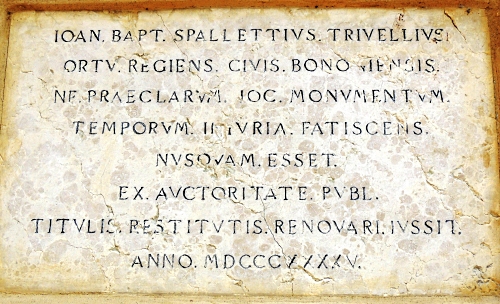 IOAN. BAPT. SPALLETTIVS. TRIVELLIVS
ORTV. REGIENS. CIVIS. BONONIENSIS.
NE. PRAECLARVM. HOC. MONVMENTVM.
TEMPORVM. INIVRIA. FATISCENS.
NVSQVAM. ESSET.
EX. AVCTORITATE. PVBL.
TITVLIS. RESTITVTIS. RENOVARI. IVSSIT.
ANNO. MDCCCXXXXV.